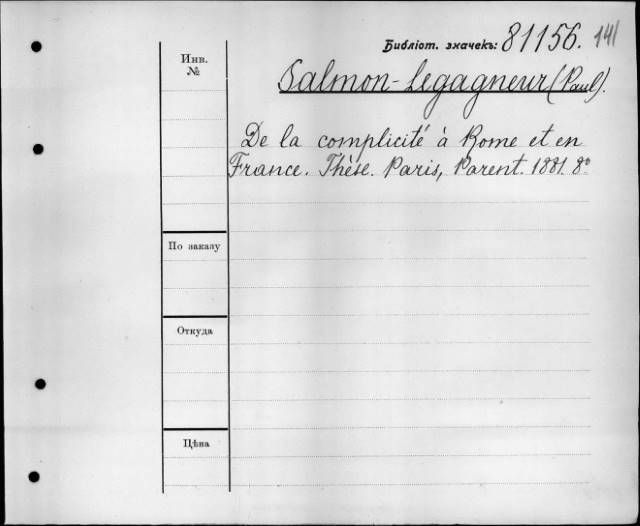 Библіот. значекъ: 81156. 141
Инв.
№
Salmon-Legagneur (Paul).
De la complicité à Rome et en
France. Thèse. Paris, Parent. 1881. 8º
По заказу
Откуда
Цѣна